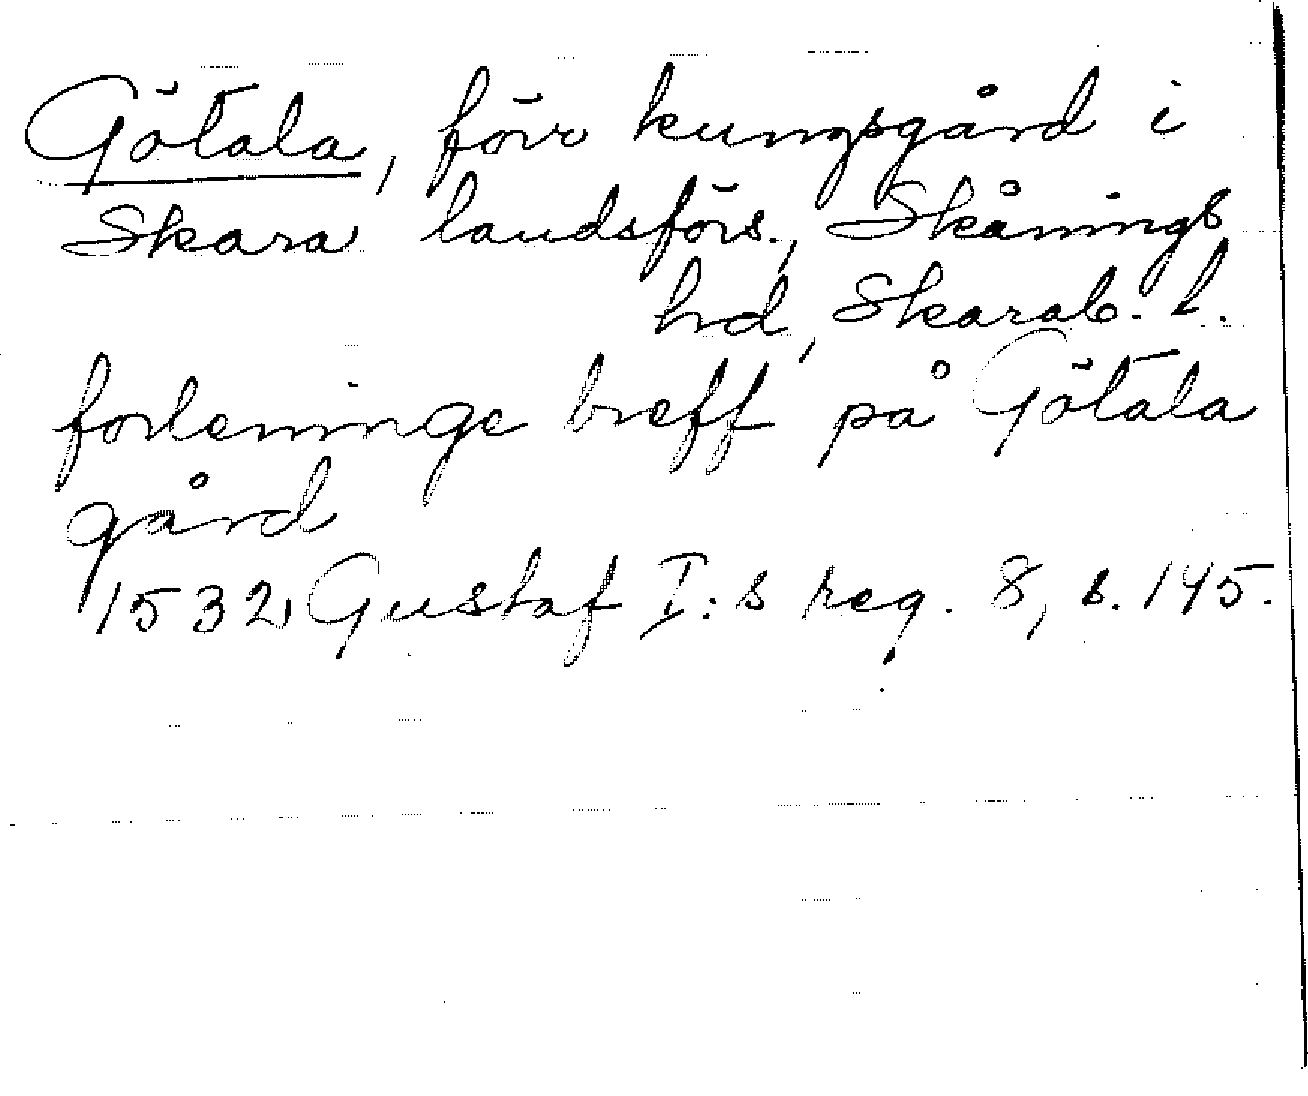 Götala, förr kungsgård i
Skara landsförs., Skånings
hd, Skarab. l.
forleninge breff på Götala
gård
1532, Gustaf I:s reg. 8, s. 145.